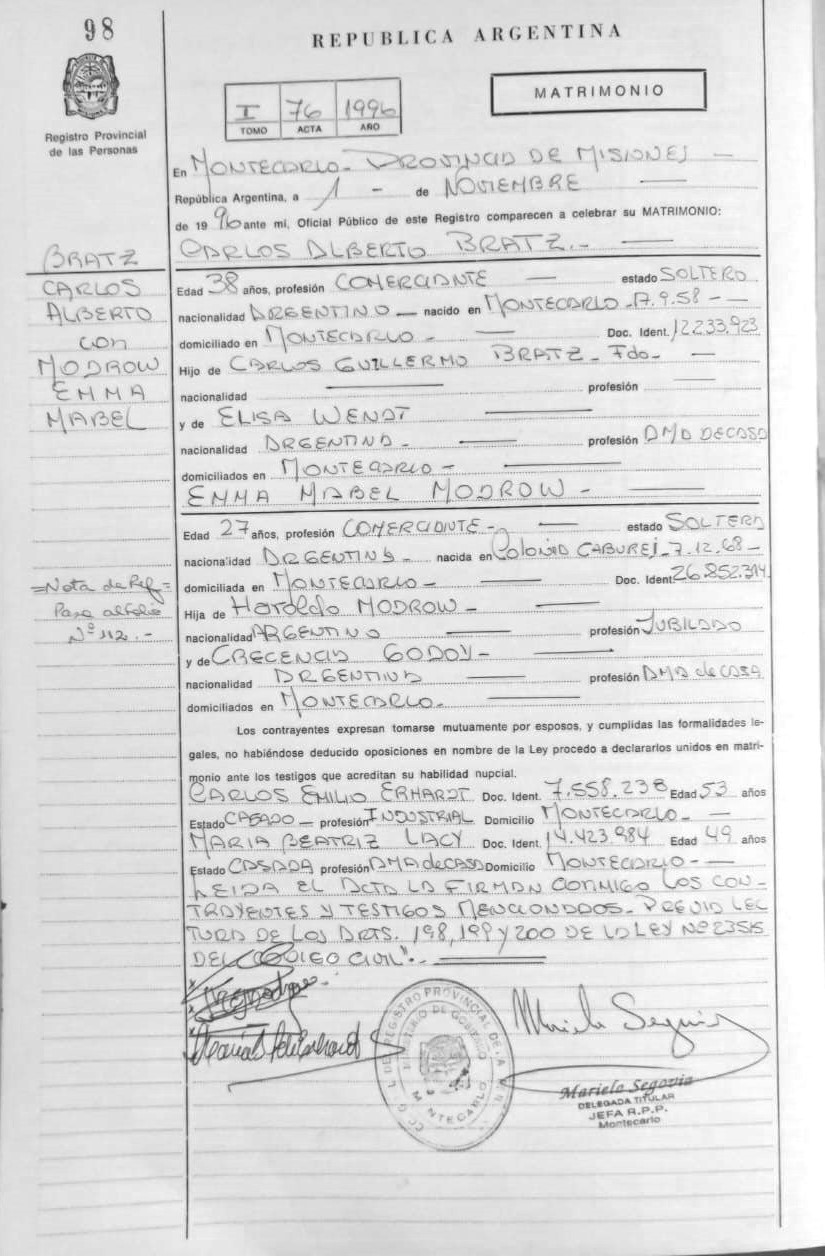 98
REPUBLICA ARGENTINA
MATRIMONIO
I 76 1996
TOMO ACTA AÑO
Registro Provincial
de las Personas
En MONTECARLO - PROVINCIA DE MISIONES —
República Argentina, a 1 - de NOVIEMBRE —
de 1996 ante mi, Oficial Público de este Registro comparecen a celebrar su MATRIMONIO:
CARLOS ALBERTO BRATZ.- —
BRATZ
CARLOS
ALBERTO
CON
MODROW
EMMA
MABEL
Edad 38 años, profesión COMERCIANTE — estado SOLTERO
nacionalidad ARGENTINO — nacido en MONTECARLO - 17.9.58 - —
domiciliado en MONTECARLO - — Doc. Ident. 12.233.923
Hijo de CARLOS GUILLERMO BRATZ - Fdo - —
nacionalidad — profesión —
y de ELISA WENDT —
nacionalidad ARGENTINA - — profesión AMA DE CASA
domiciliados en MONTECARLO - —
EMMA MABEL MODROW - —
Edad 27 años, profesión COMERCIANTE - — estado SOLTERA
nacionalidad ARGENTINA - nacida en Colonia CABUREI - 7.12.68 -
domiciliada en MONTECARLO - — Doc. Ident. 26.852.314
Hija de Haroldo MODROW - —
nacionalidad ARGENTINO — profesión JUBILADO
y de CRECENCIA GODOY - —
nacionalidad ARGENTINA — profesión AMA de CASA
domiciliados en MONTECARLO - —
=Nota de Ref=
Pasa al folio
Nº 112.-
Los contrayentes expresan tomarse mutuamente por esposos, y cumplidas las formalidades le-
gales, no habiéndose deducido oposiciones en nombre de la Ley procedo a declararlos unidos en matri-
monio ante los testigos que acreditan su habilidad nupcial.
CARLOS EMILIO ERHARDT Doc. Ident. 7.558.238 Edad 53 años
Estado CASADO — profesión INDUSTRIAL Domicilio MONTECARLO - —
MARIA BEATRIZ LACY Doc. Ident. 14.423.984 Edad 49 años
Estado CASADA profesión AMA de CASA Domicilio MONTECARLO - —
LEIDA EL ACTA LA FIRMAN CONMIGO LOS CON-
TRAYENTES Y TESTIGOS MENCIONADOS - PREVIA LEC
TURA DE LOS ARTS. 198, 199 y 200 DE LA LEY Nº 23515
DEL CODIGO CIVIL".
REGISTRO PROVINCIAL DE LA
MINISTERIO DE GOBIERNO
MONTECARLO
Mariela Segovia
DELEGADA TITULAR
JEFA R.P.P.
Montecarlo